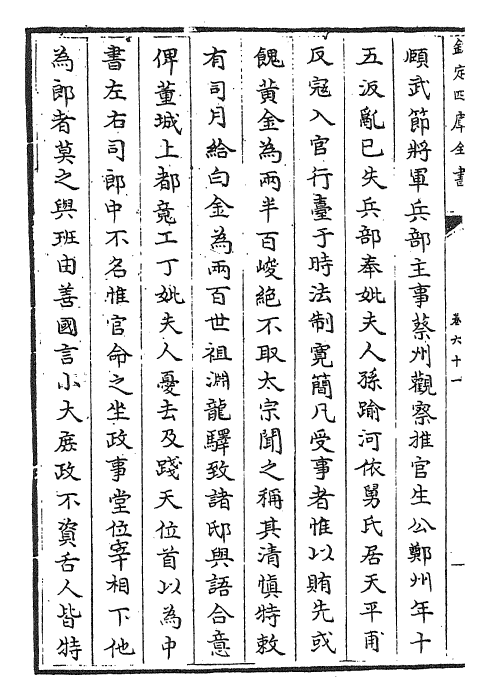 欽定四庫全書
卷六十一
頤武節將軍兵部主事蔡州觀察推官生公鄭州年十
五汲亂已失兵部奉妣夫人孫踰河依舅氏居天平甫
反冦入官行臺于時法制寛簡凡受事者惟以賄先或
餽黄金為兩半百峻絶不取太宗聞之稱其清慎特敕
有司月給白金為兩百世祖淵龍驛致諸邸與語合意
俾董城上都竟工丁妣夫人憂去及踐天位首以為中
書左右司郎中不名惟官命之坐政事堂位宰相下他
為郎者莫之與班由善國言小大庶政不資舌人皆特